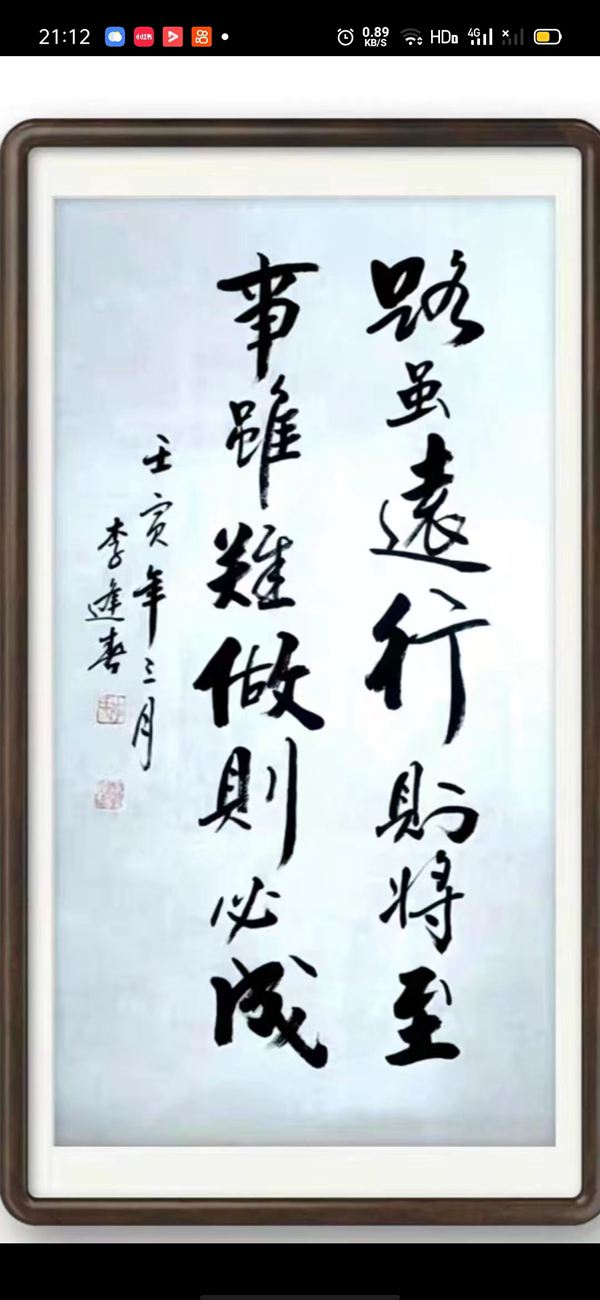 21:12
0.89 KB/S
HD
4G
路虽遠行則将至
事雖難做則必成
壬寅年三月
李逢春